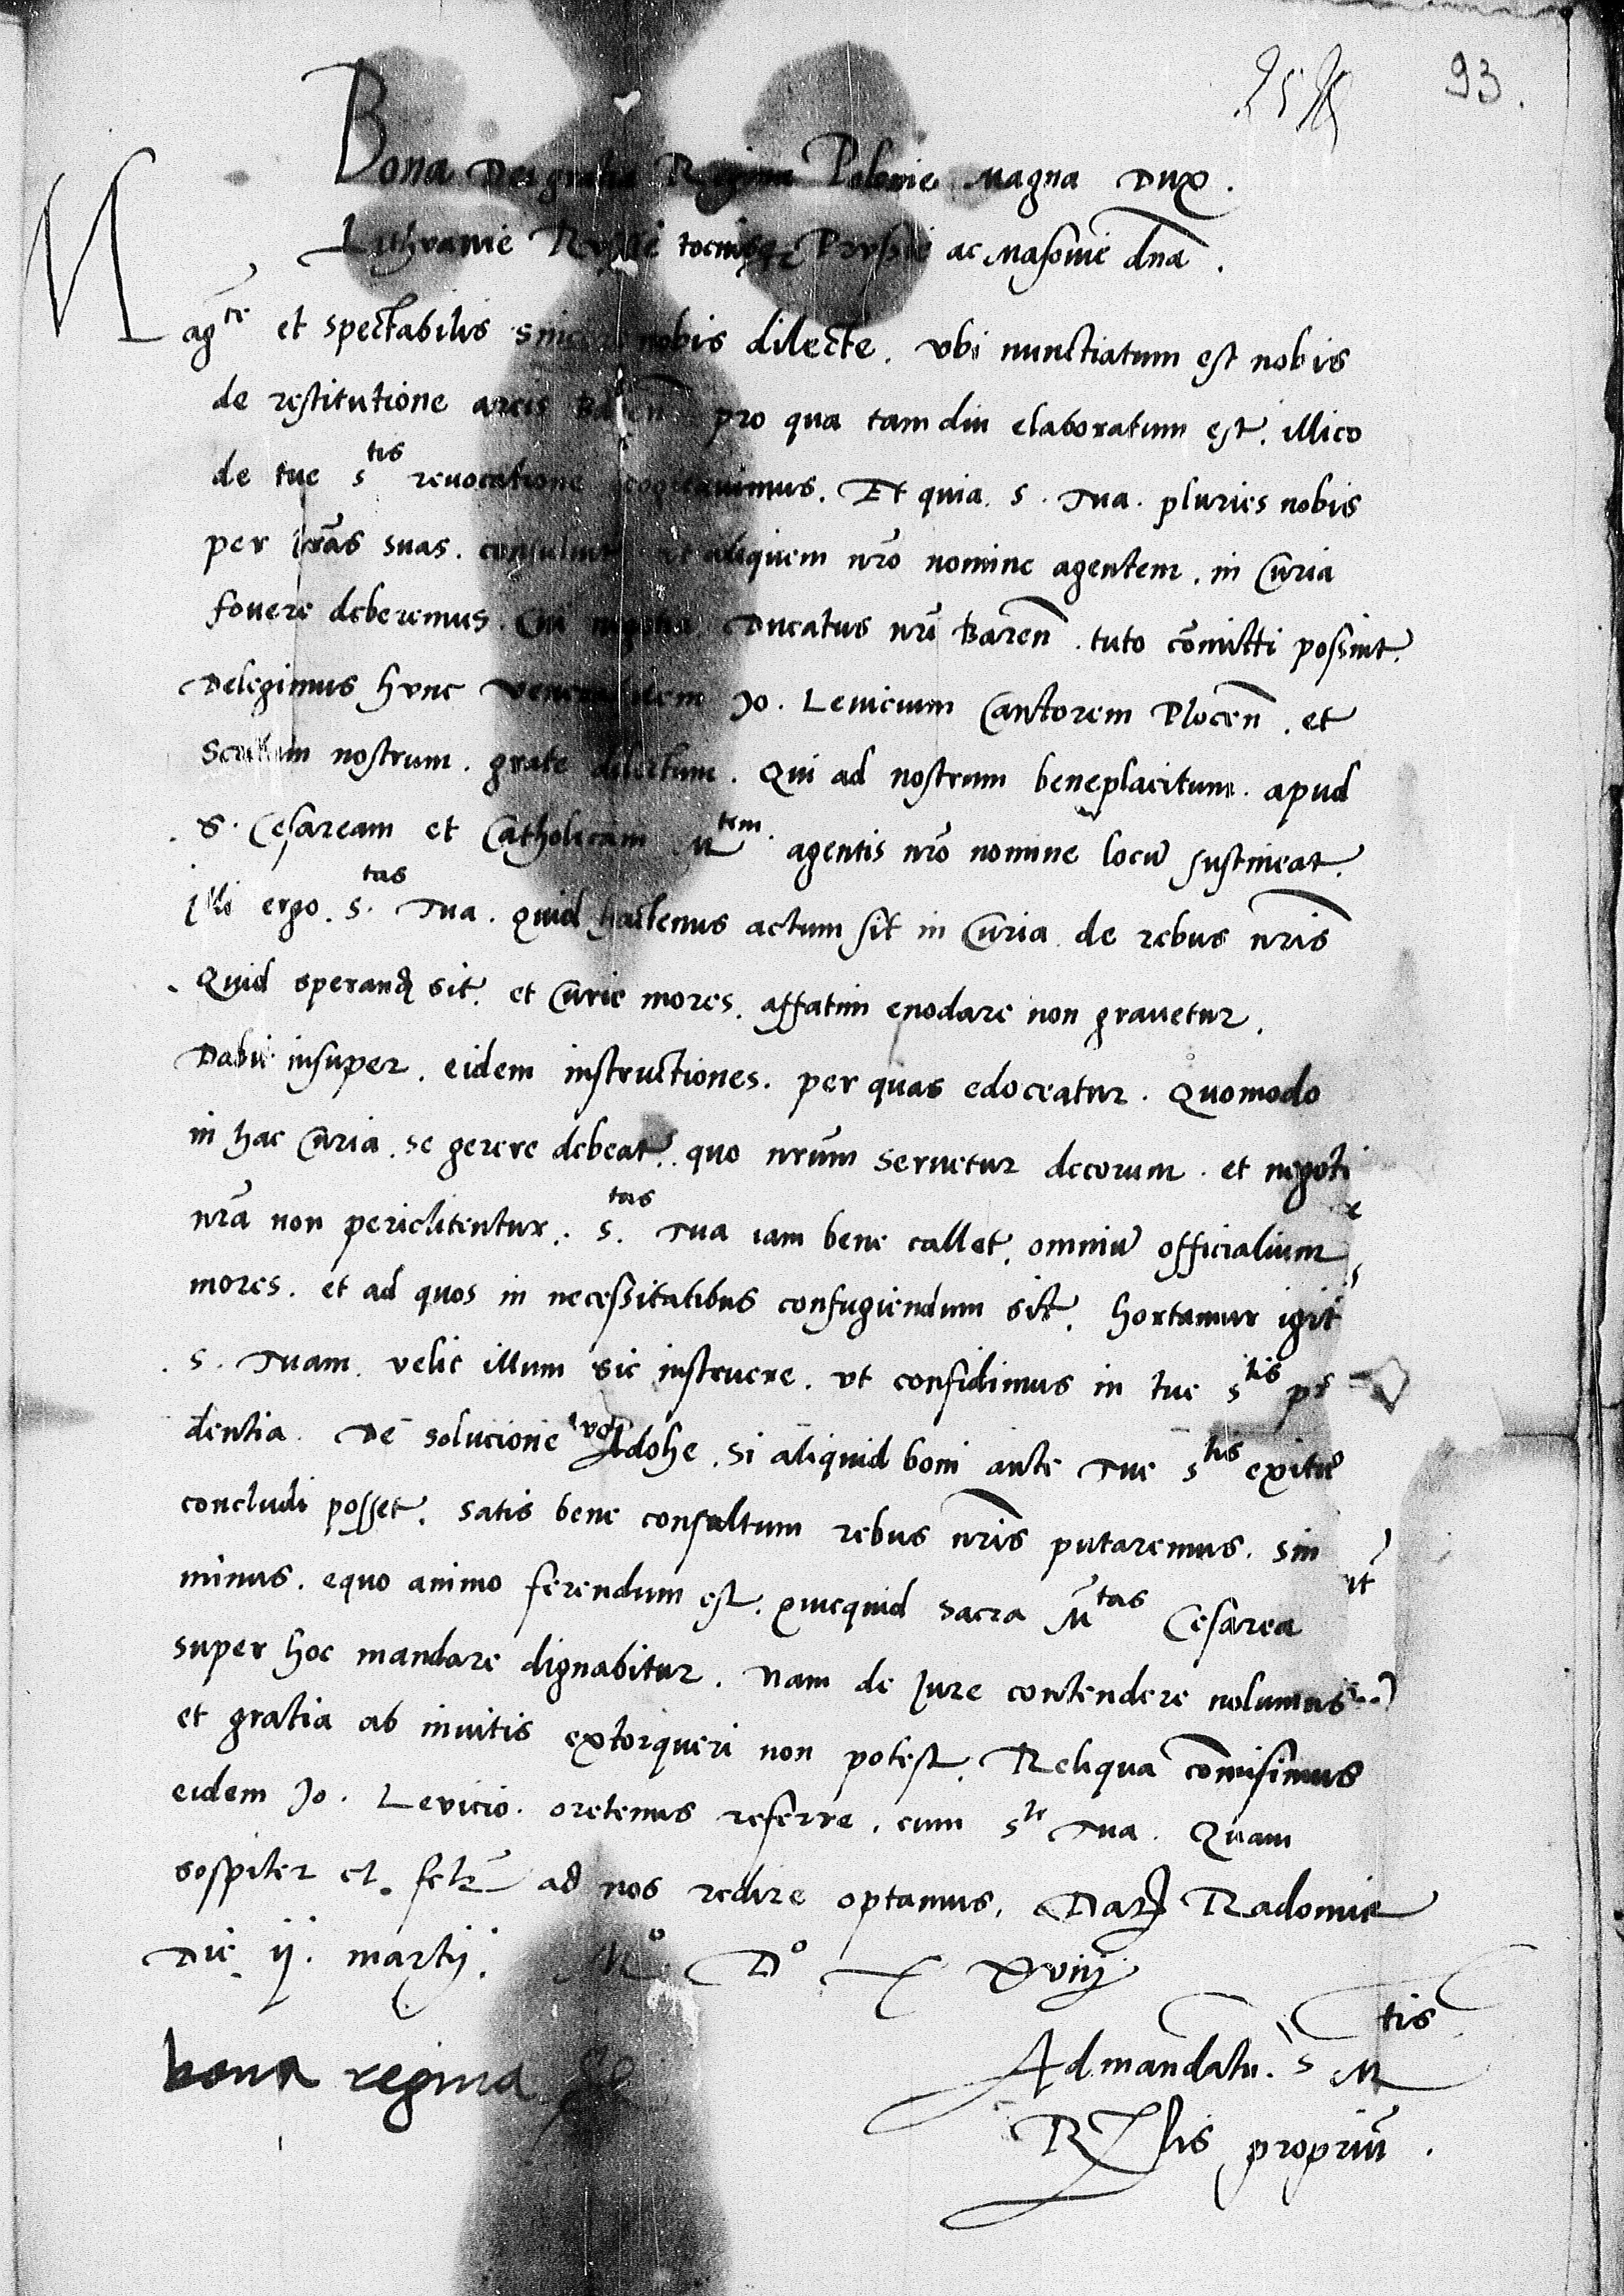 93.
Bona Dei gratia Regina Polonie Magna Dux.
Lithvanie Rvssie tociusqz Prvssie ac Masovie dna.
Magce et spectabilis sincere nobis dilecte. vbi nunctiatum est nobis
de restitutione arcis Baren pro qua tam diu elaboratum est. illico
de tue stis revocatione cogitavimus. Et quia s. Tua. pluries nobis
per lras suas. consuluit ut aliquem nro nomine agentem. in Curia
fovere deberemus. Cui negotia Ducatus nri Baren. tuto comitti possint.
Delegimus hvnc venerabilem Jo. Levicium Cantorem Plocen. et
Secretum nostrum. grate dilectum. Qui ad nostrum beneplacitum. apud
S. Cesaream et Catholicam Mtem. agentis nro nomine locu sustineat.
illi ergo. s.tas Tua. quid hactenus actum sit in Curia de rebus nris
Quid sperand sit. et Curie mores. affatim enodare non gravetur.
Dabit insuper. eidem instructiones. per quas edoceatur. Quomodo
in hac Curia. se gerere debeat. quo nrum servetur decorum. et negoti
nra non periclitentur. s.tas Tua iam bene callet. omniu officialium
mores. et ad quos in necessitatibus confugiendum sit. hortamur igit
s. Tuam. velit illum sic instruere. vt confidimus in tue stis pr
dentia. De solucione Adohe. si aliquid boni ante Tue stis exitu
concludi posset. satis bene consultum rebus nris putaremus. sin
minus. equo animo ferendum est. quicquid sacra Mtas Cesarea
super hoc mandare dignabitur. Nam de Jure contendere nolumus
et gratia ab invitis extorqueri non potest. Reliqua comisimus
eidem Jo. Levicio. oretenus referre. cum ste Tua. Quam
sospiter et felr ad nos redire optamus. Dat Radomie
Die ij. martij. Mo Do X Xviij
bona regina
Ad mandatu. s Mtis
Rlis propriu.